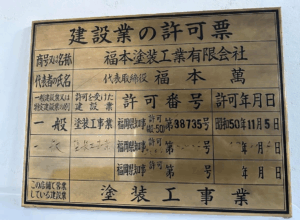 建設業の許可票
商号又は名称 福本塗装工業有限会社
代表者の氏名 代表取締役 福本 萬
一般建設業又は特定建設業の別 許可を受けた建設業 許可番号 許可年月日
一般 塗装工事業 福岡県知事 許可 第98735号 昭和50年11月5日
一般 塗装工事業 福岡県知事 許可 第 号 年 月 日
福岡県知事 許可 第 号 年 月 日
この店舗で営業している建設業 塗装工事業